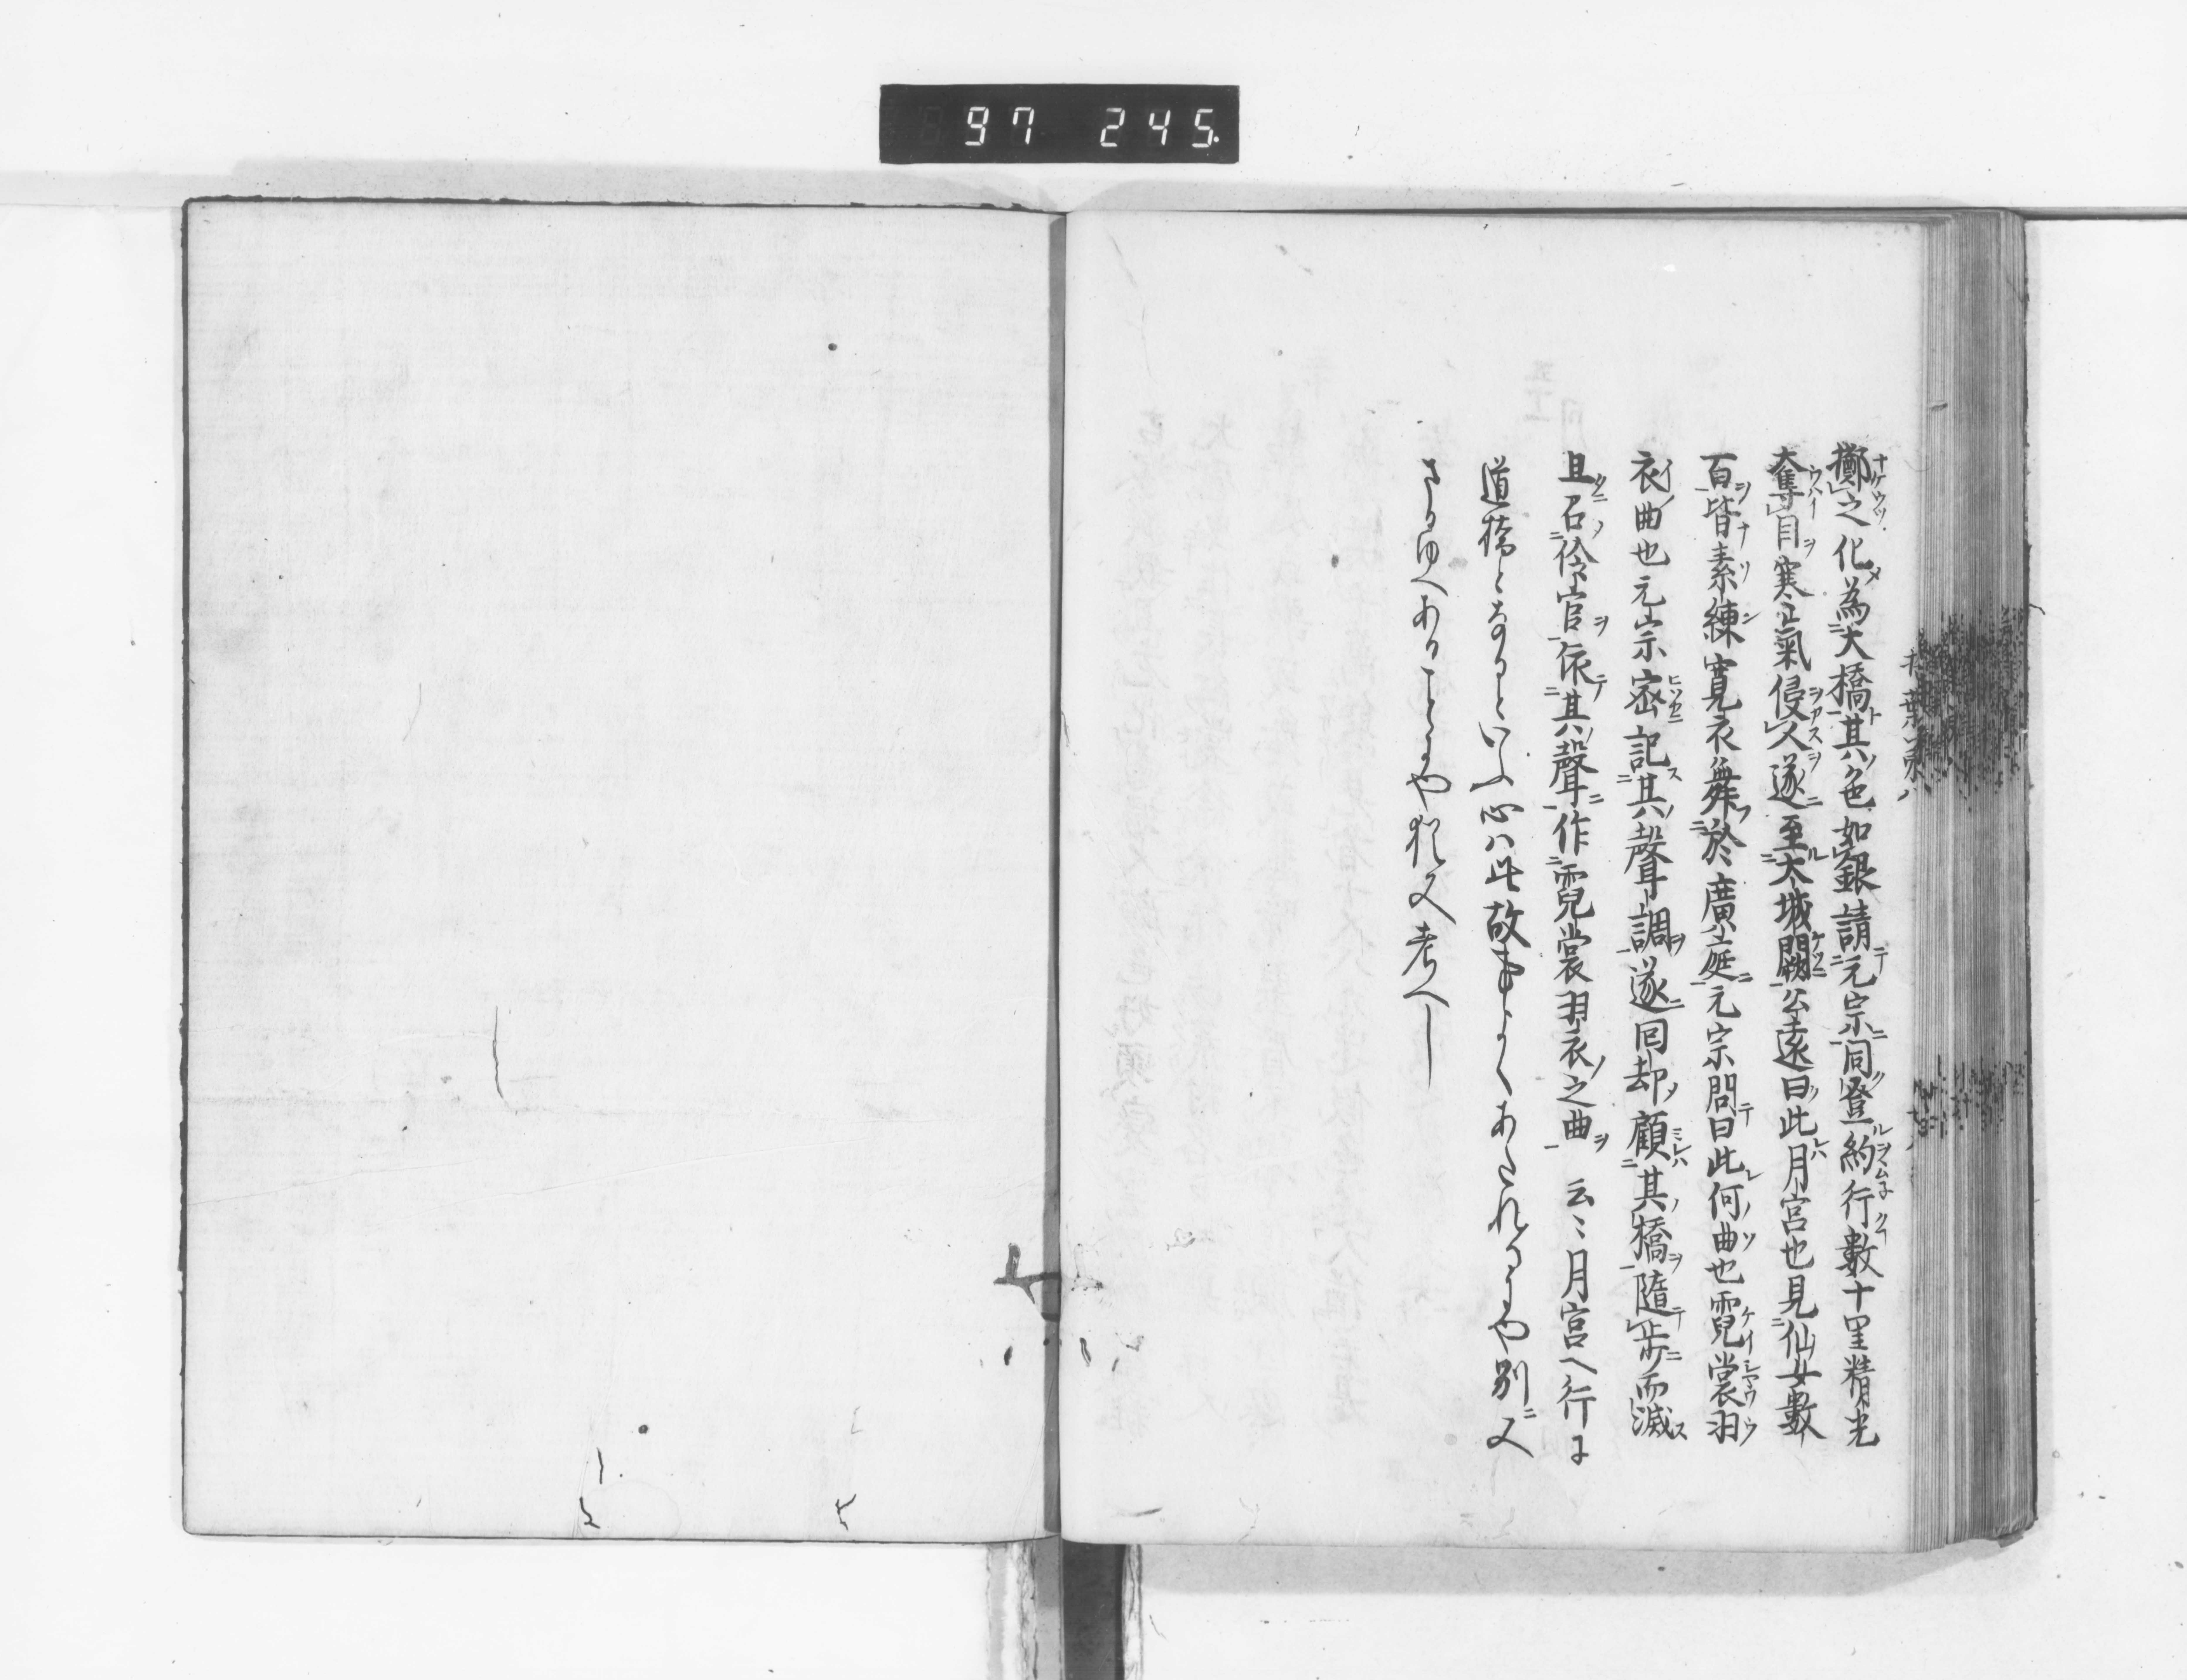 97 245.
擲之化為大橋其色如銀請元宗同登約行數十里精光
奪目寒氣侵人遂至大城闕公遠曰此月宮也見仙女數
百皆素練寛衣舞於廣庭元宗問曰此何曲也霓裳羽
衣曲也元宗密記其聲調遂囘却顧其橋隨歩而滅
且召伶官依其聲作霓裳羽衣之曲 云〻月宮へ行に
道橋となるといふ心ハ此故事よくあたれるにや別ニ又
さるゆへあることにや猶又考へし